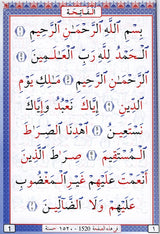 الفاتحة
بِسْمِ اللَّهِ الرَّحْمَٰنِ الرَّحِيمِ ﴿١﴾
الْحَمْدُ لِلَّهِ رَبِّ الْعَالَمِينَ ﴿٢﴾
الرَّحْمَٰنِ الرَّحِيمِ ﴿٣﴾ مَالِكِ يَوْمِ
الدِّينِ ﴿٤﴾ إِيَّاكَ نَعْبُدُ وَإِيَّاكَ
نَسْتَعِينُ ﴿٥﴾ اهْدِنَا الصِّرَاطَ
الْمُسْتَقِيمَ ﴿٦﴾ صِرَاطَ الَّذِينَ
أَنْعَمْتَ عَلَيْهِمْ غَيْرِ الْمَغْضُوبِ
عَلَيْهِمْ وَلَا الضَّالِّينَ ﴿٧﴾
١ في هذه الصفحة 1520 - ١٥٢٠ حسنة 1